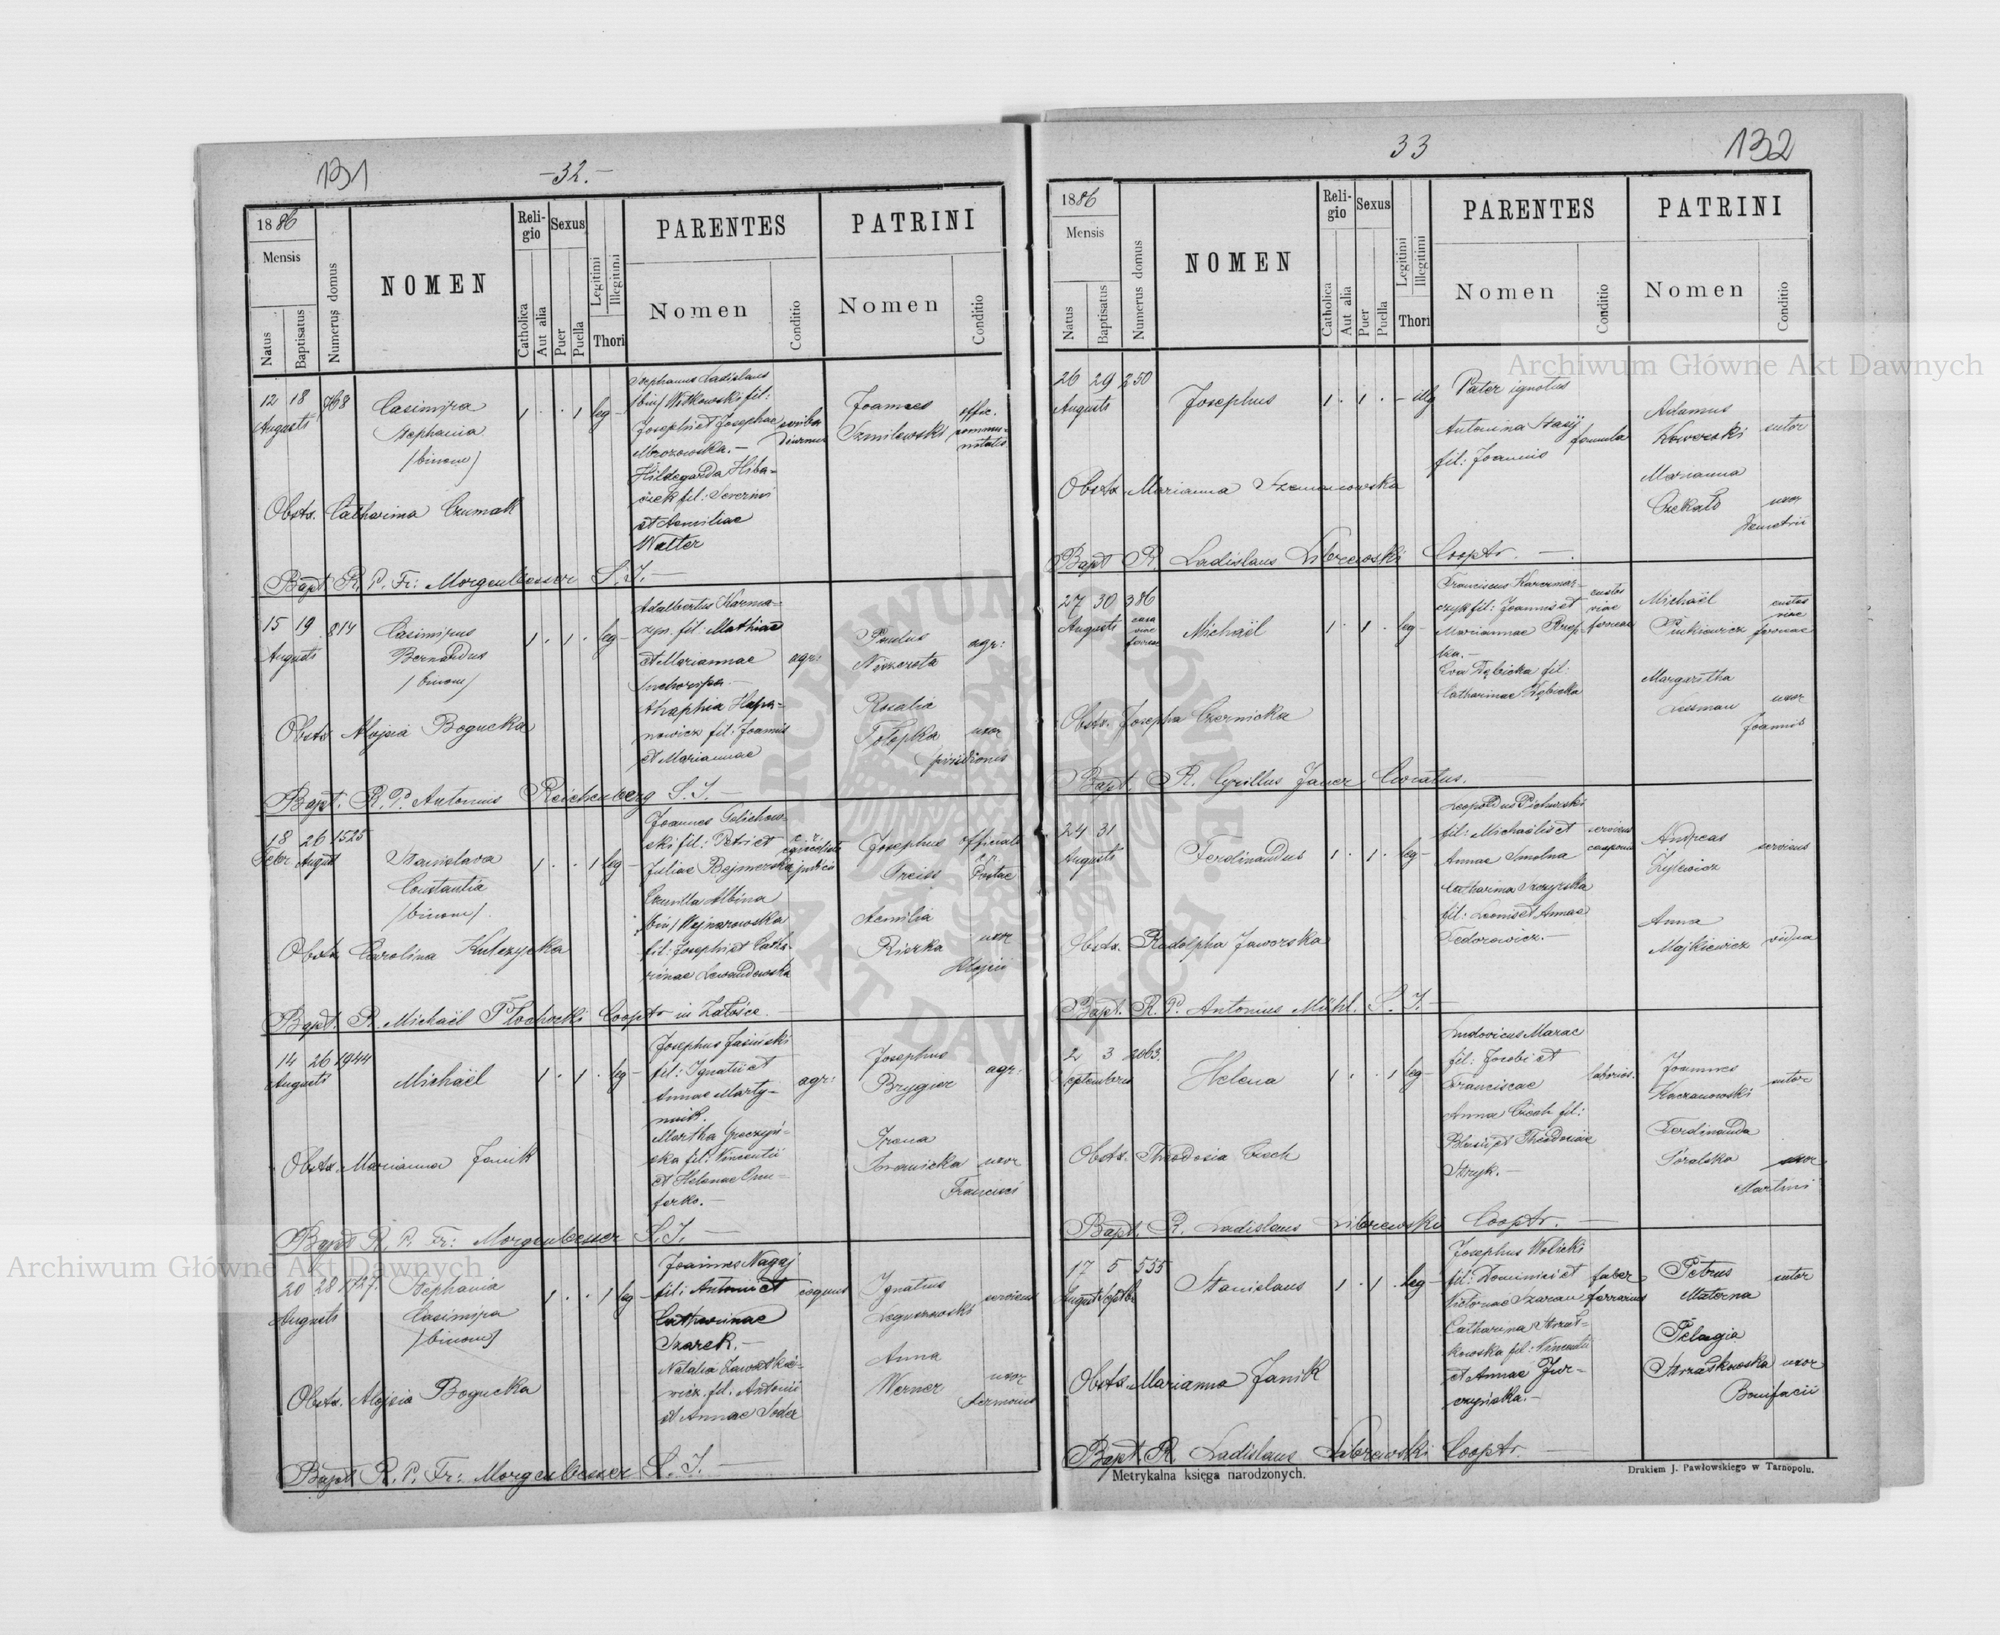 131
-32.-
1886
Mensis
Natus
Baptisatus
Numerus domus
NOMEN
Religio
Catholica
Aut alia
Sexus
Puer
Puella
Legitimi
Illegitimi
Thori
PARENTES
Nomen
Conditio
PATRINI
Nomen
Conditio
12 18 468
Augusti
Casimira
Stephania
/binom/
1 . . 1 leg -
Stephanus Ladislaus
/bin/ Witkowski fil:
Josephi et Josephae
Mrozowska. -
Hildegarda Hiba-
czek fil: Severini
et Aemiliae
Walter
scriba
diurnus
Joannes
Szmilewski
offic.
commu-
nitatis
Obstx. Catharina Czumak
Bapt. R. P. Fr: Morgenbesser S. J. -
15 19 814
Augusti
Casimirus
Bernardus
/binom/
1 . 1 . leg -
Adalbertus Karma-
zyn. fil: Mathiae
et Mariannae
agr:
nowicz fil: Joannis
et Mariannae
Paulus
agr:
Rosalia
uxor
Obstx Alojsia Bogucka
Bapt. R. P. Antonius Reichenberg S. J. -
18 26 1525
Febr. August
Stanislava
Constantia
/binom/.
1 . . 1 leg -
Joannes
ski fil: Petri et
Juliae
Albina
/bin/ Wejnarowska
fil: Josephi et Catha-
rinae Lewandowska
Josephus
Preiss
Aemilia
Riczka
uxor
Alojsii
Obstx Carolina Kulczycka
Bapt. R. Michaël Płochocki Cooptr in Załośce.
14 26 1944
Augusti
Michaël
1 . 1 . leg -
Josephus Jasiński
fil: Ignatii et
Annae Marty-
niuk.
Martha
ska fil: Vincentii
et Helenae Onu-
ferko. -
agr:
Josephus
Brygier
agr:
Irena
uxor
Francisci
Obstx. Marianna Janik
Bapt R. P. Fr: Morgenbesser S. J. -
20 28 1727.
Augusti
Stephania
Casimira
/binom/
1 . . 1 leg -
Joannes Nagaj
fil: Antonii et
Catharinae
Szarek. -
Natalia Zawadkie-
wicz. fil. Antonii
et Annae Seder
coquus
Ignatius
serviens
Anna
Werner
uxor
Obstx. Alojsia Bogucka
Bapt R. P. Fr: Morgenbesser S. J. -
33
132
1886
Mensis
Natus
Baptisatus
Numerus domus
NOMEN
Religio
Catholica
Aut alia
Sexus
Puer
Puella
Legitimi
Illegitimi
Thori
PARENTES
Nomen
Conditio
PATRINI
Nomen
Conditio
26 29 250
Augusti
Josephus
1 . 1 . - illg
Pater ignotus
Antonina Stasij
fil: Joannis
famula
Adamus
Kowerski
sutor
Marianna
Czekało
uxor
Demetrii
Obstx Marianna Szemanowska
Bapt R Ladislaus Librewski Cooptr. -
27 30 386
Augusti
casa
viae
ferreae
Michaël
1 . 1 . leg -
Franciscus Karczmar-
czyk fil: Joannis et
Mariannae
Eva Dębicka fil:
Catharinae Dębicka
custos
viae
ferreae
Michaël
Pinkiewicz
custos
viae
ferreae
Margaritha
uxor
Joannis
Obstx. Josepha Czernicka
Bapt. R. Cyrillus Janer Curatus.
24 31
Augusti
Ferdinandus
1 . 1 . leg -
Leopoldus
fil: Michaëlis et
Annae Smolna
Catharina
fil: Leonis et Annae
Fedorowicz. -
serviens
cauponis
Andreas
Żyłewicz
serviens
Anna
Majkiewicz
vidua
Obstx. Rudolpha Jaworska
Bapt. R. P. Antonius Mühl. S. J. -
2 3 2063.
Septembris
Helena
1 . . 1 leg -
Ludovicus Marac
fil: Jacobi et
Franciscae
Anna Ciech fil:
Blasii et Theodosiae
Stryk. -
laborios.
Joannes
Kaczanowski
sutor
Ferdinanda
Góralska
uxor
Martini
Obstx. Theodosia Ciech
Bapt. R. Ladislaus Librewski Cooptr. -
17 5 555
August Septbr
Stanislaus
1 . 1 . leg -
Josephus Wolicki
fil: Dominici et
Victoriae Szaran
Catharina Strat-
kowska fil: Vincentii
et Annae Jur-
czyńska. -
faber
ferrarius
Petrus
Materna
sutor
Pelagia
uxor
Bonifacii
Obstx. Marianna Janik
Bapt. R. Ladislaus Librewski Cooptr. -
Metrykalna księga narodzonych.
Drukiem J. Pawłowskiego w Tarnopolu.
Archiwum Główne Akt Dawnych
Archiwum Główne Akt Dawnych
ARCHIWUM GŁÓWNE AKT DAWNYCH